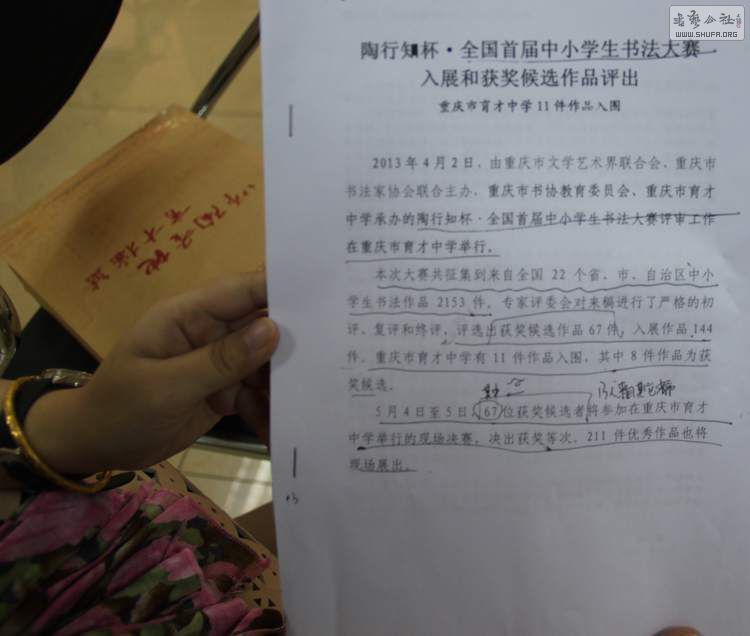 WWW.SHUFA.ORG
陶行知杯·全国首届中小学生书法大赛
入展和获奖候选作品评出
重庆市育才中学11件作品入围
2013年4月2日，由重庆市文学艺术界联合会、重庆市
书法家协会联合主办，重庆市书协教育委员会、重庆市育才
中学承办的陶行知杯·全国首届中小学生书法大赛评审工作
在重庆市育才中学举行。
本次大赛共征集到来自全国22个省、市、自治区中小
学生书法作品2153件，专家评委会对来稿进行了严格的初
评、复评和终评，评选出获奖候选作品67件，入展作品144
件。重庆市育才中学有11件作品入围，其中8件作品为获
奖候选。
5月4日至5日，67位获奖候选者将参加在重庆市育才
中学举行的现场决赛，决出获奖等次，211件优秀作品也将
现场展出。